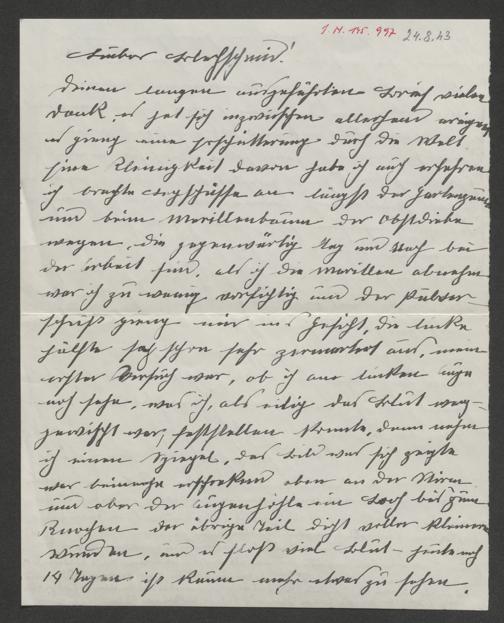 J.N. 145.997 24.8.43
Lieber Blechschmid!
Deinen langen ausgeführten Brief vielen
Dank, es hat sich inzwischen allerhand ereignet
es gieng eine Erschütterung durch die Welt
eine Kleinigkeit davon habe ich auch erfahren
ich brachte Legschüsse an längst der Gartenzäune
und beim Marillenbaum der Obstdiebe
wegen, die gegenwärtig Tag und Nach bei
der Arbeit sind, als ich die Marillen abnehm
war ich zu wenig vorsichtig und der Pulver-
schuß gieng mir ins Gesicht, die linke
Hälfte sah schon sehr zermartert aus, mein
erster Versuch war, ob ich am linken Auge
noch sehe, was ich, als eilig das Blut weg-
gewischt war, feststellen konnte, dann nahm
ich einen Spiegel, das Bild was sich zeigte
war beinahe erschreken oben an der Stirn
und ober der Augenhöhle ein Loch bis zum
Knochen der übrige Teil dicht voller kleiner
Wunden, und es floß viel Blut – heute nach
14 Tagen ist kaum mehr etwas zu sehen.